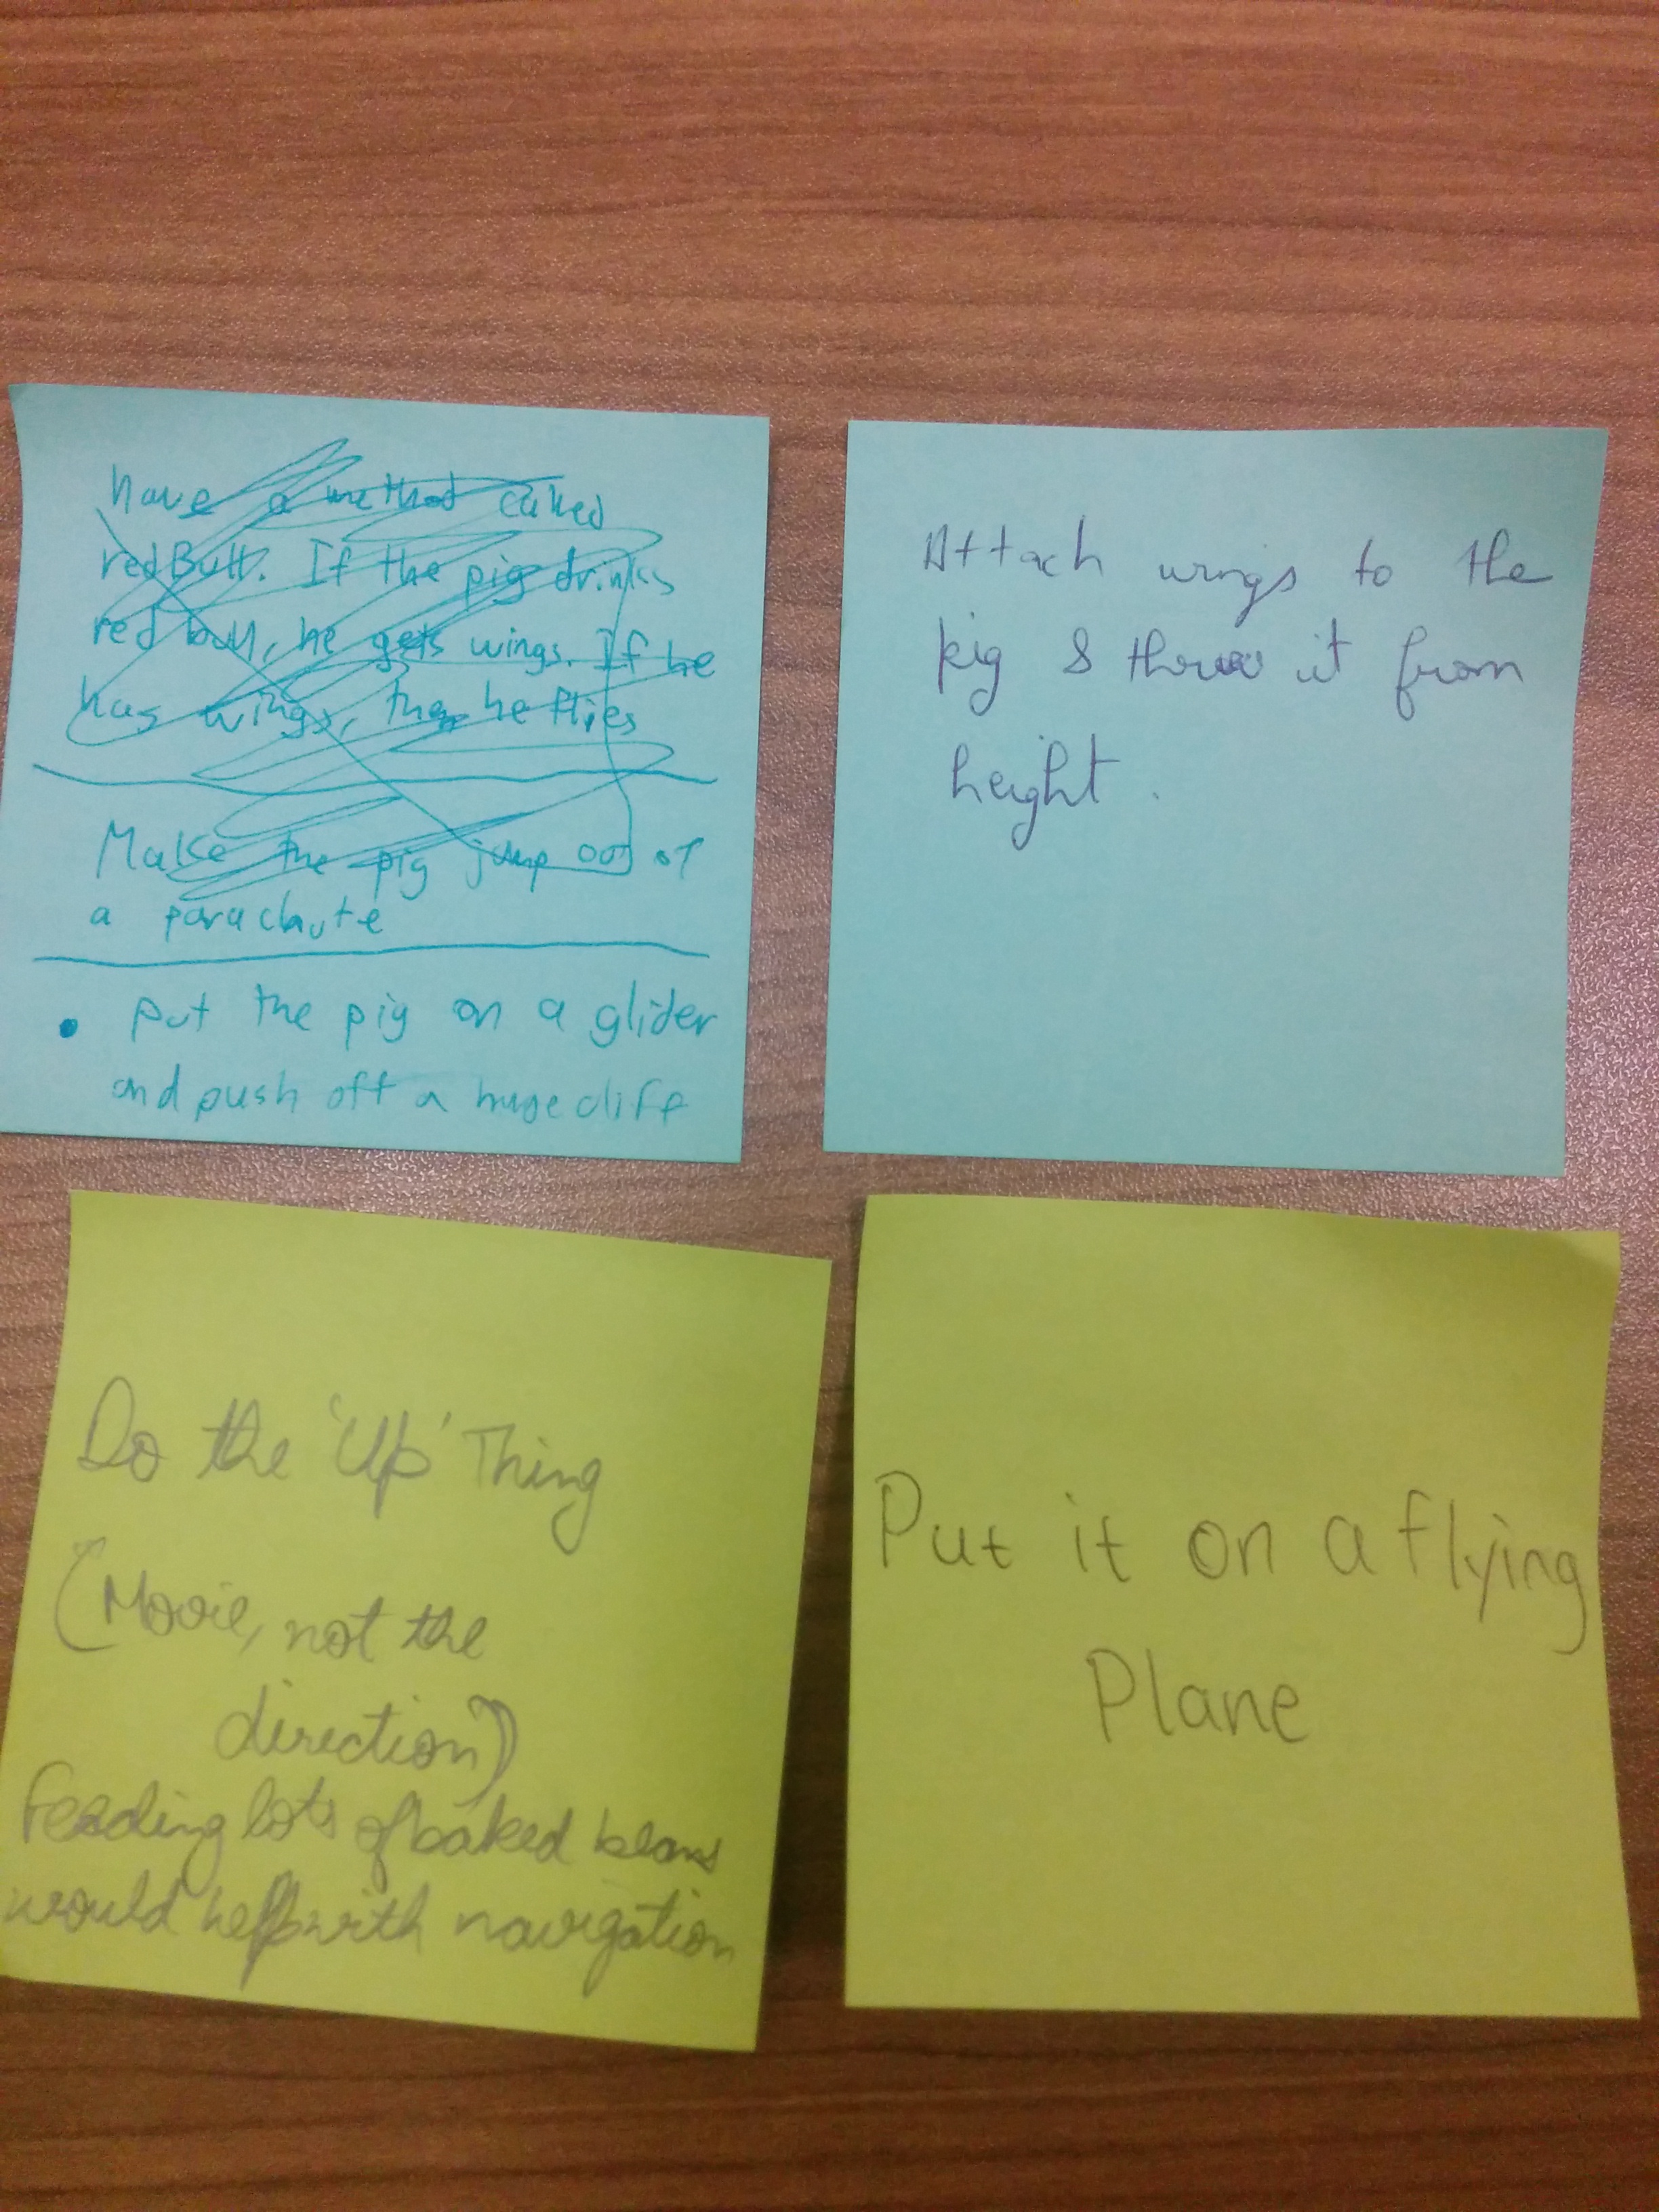 have a method called
redBull. If the pig drinks
red bull, he gets wings. If he
has wings, then he flies
Make the pig jump out of
a parachute
• put the pig on a glider
and push off a huge cliff
Attach wings to the
pig & throw it from
height.
Do the 'Up' Thing
(Movie, not the
direction)
Feeding lots of baked beans
would help with navigation
Put it on a flying
Plane